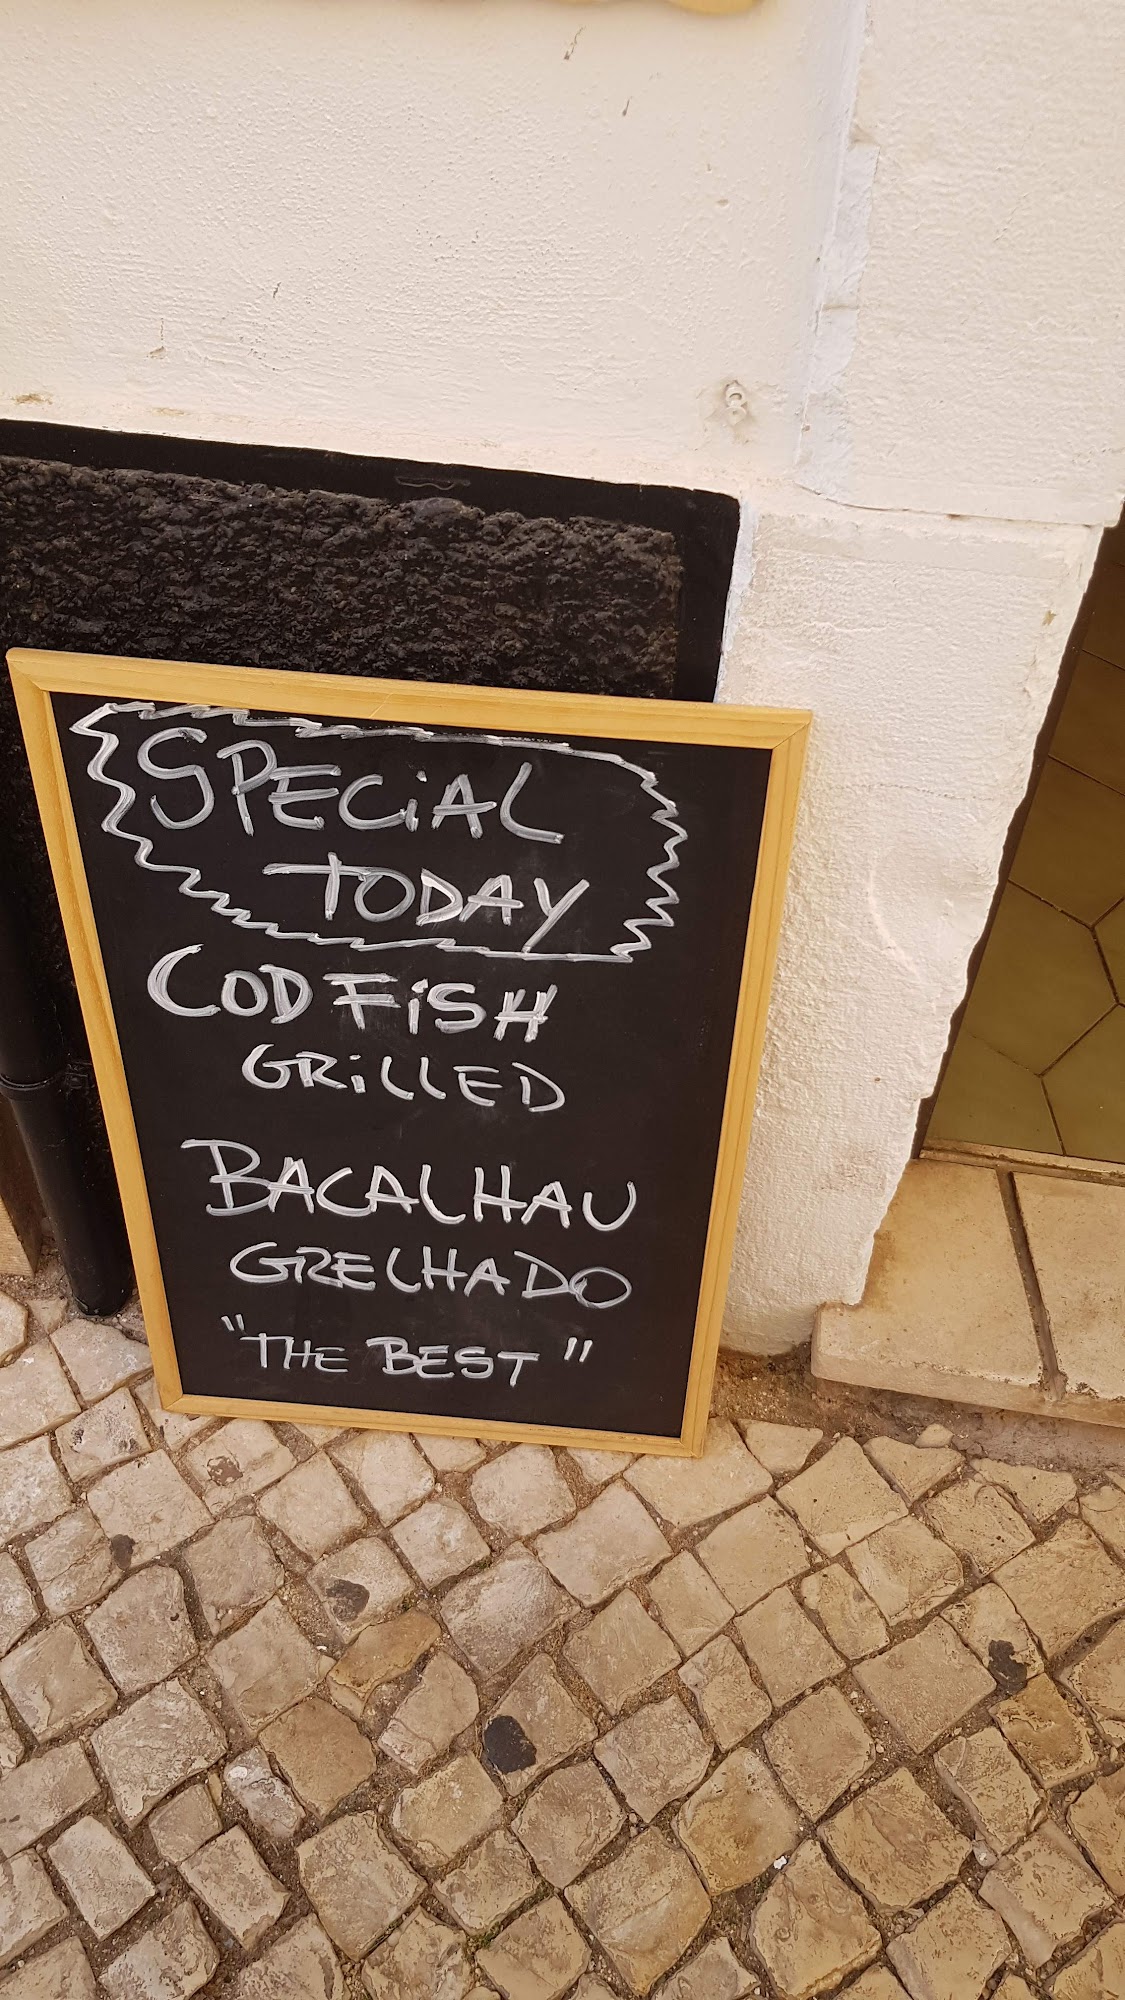 SPECiAL
TODAY
COD FiSH
GRiLLED
BACALHAU
GRELHADO
"THE BEST"